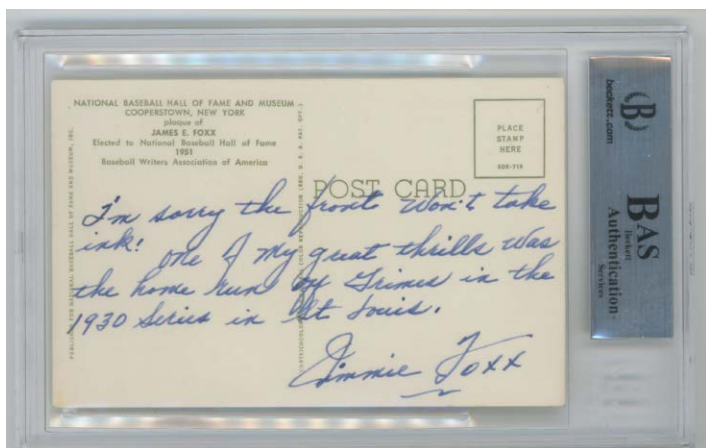 NATIONAL BASEBALL HALL OF FAME AND MUSEUM
COOPERSTOWN, NEW YORK
plaque of
JAMES E. FOXX
Elected to National Baseball Hall of Fame
1951
Baseball Writers Association of America
PLACE
STAMP
HERE
POST CARD
I'm sorry the front won't take
ink! One of my great thrills was
the home run off Grimes in the
1930 Series in St Louis.
Jimmie Foxx
(B)
beckett.com
BAS
Beckett
Authentication
Services